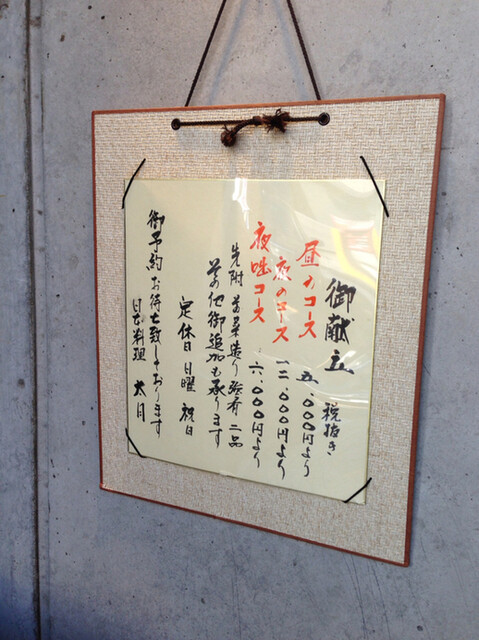 御献立 税抜き
昼のコース 五、〇〇〇円より
夜のコース 一二、〇〇〇円より
夜咄コース 六、〇〇〇円より
先附 前菜 造り 強肴 二品
その他御追加も承ります
定休日 日曜 祝日
御予約お待ち致しております
日本料理 太月